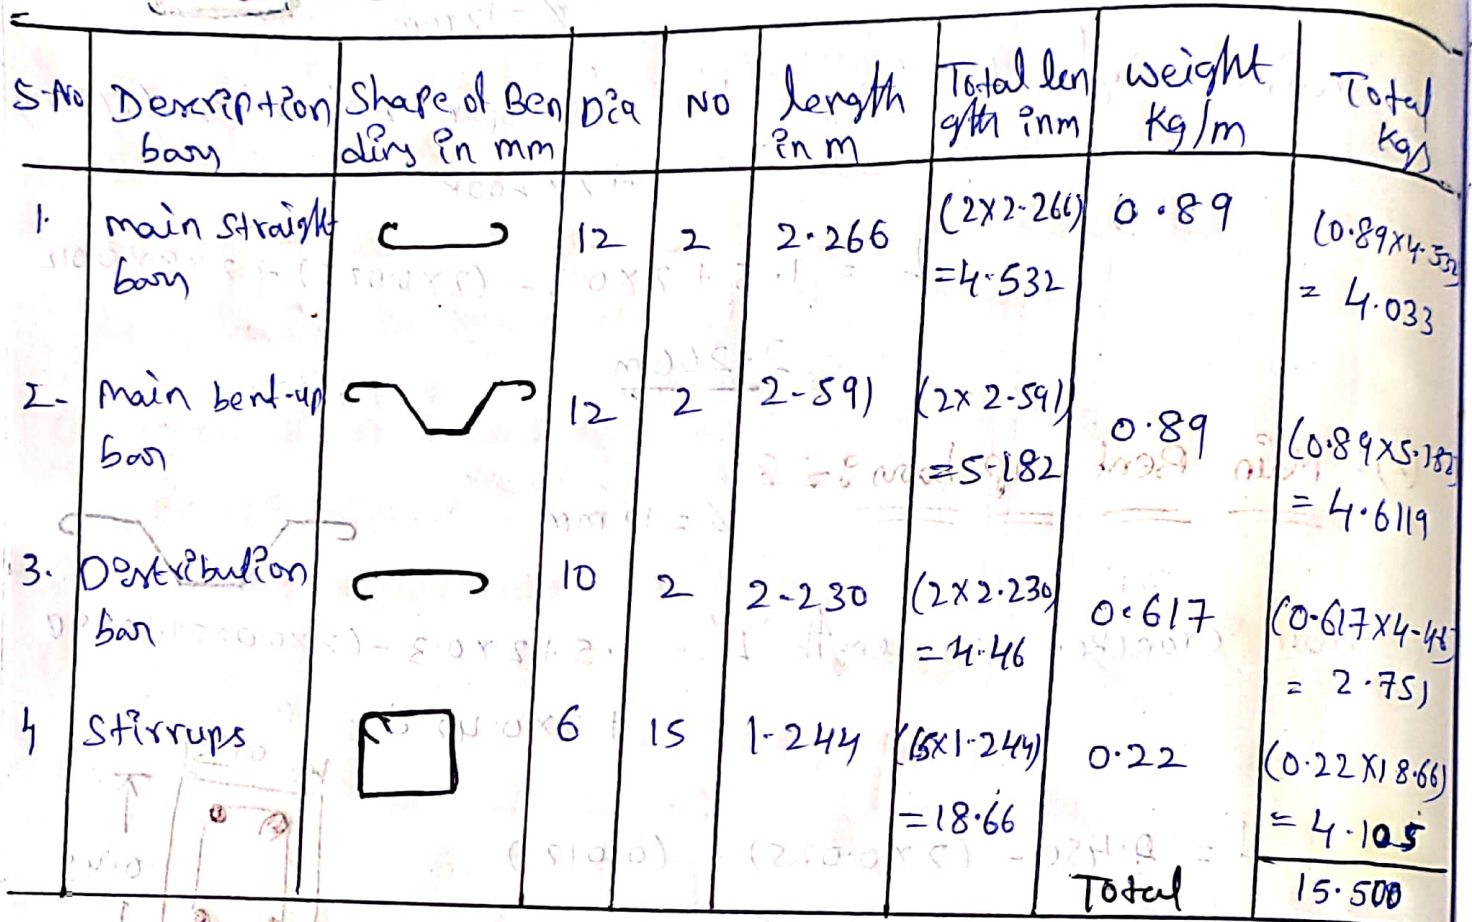 S.No Description bars Shape of Bending in mm Dia No length in m Total length in m weight Kg/m Total Kgs
1. main straight bars 12 2 2.266 (2x2.266) =4.532 0.89 (0.89x4.532) = 4.033
2. main bent-up bar 12 2 2.591 (2x2.591) =5.182 0.89 (0.89x5.182) = 4.6119
3. Distribution bar 10 2 2.230 (2x2.230) =4.46 0.617 (0.617x4.46) = 2.751
4 Stirrups 6 15 1.244 (15x1.244) =18.66 0.22 (0.22x18.66) = 4.105
Total 15.500